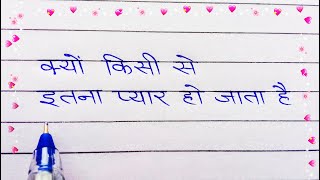 क्यों किसी से
इतना प्यार हो जाता है